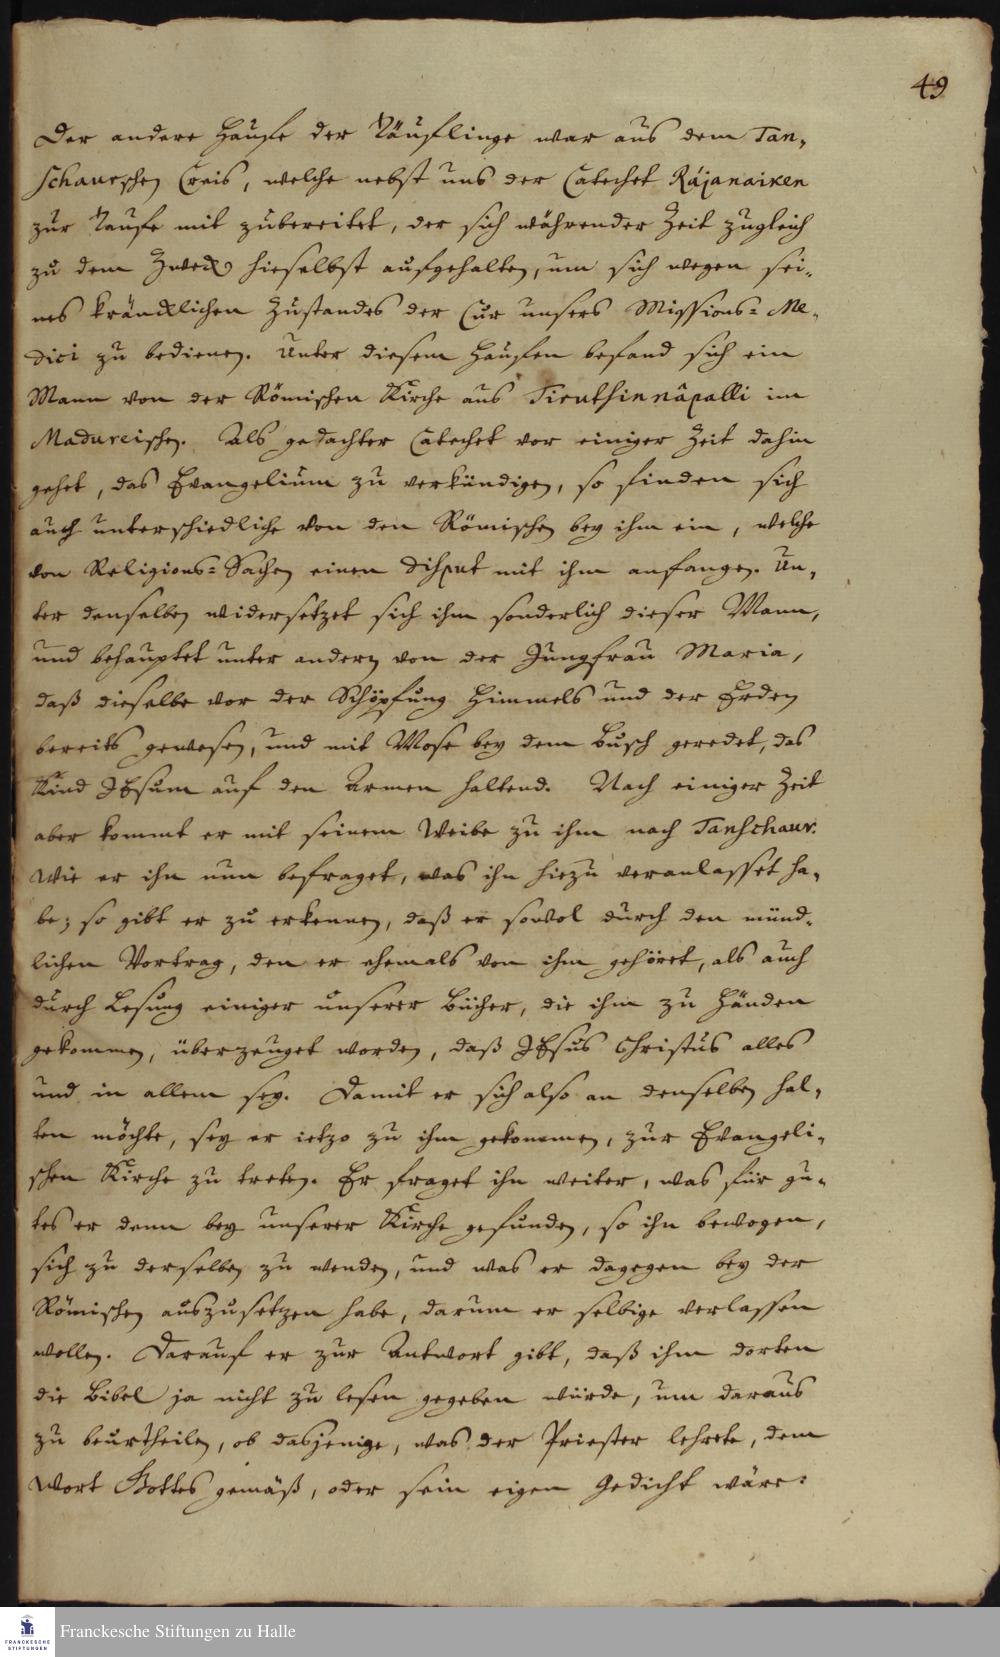 49
Der andere Hauffe der Täuflinge war aus dem Tan-
schaurschen Creis, welche nebst uns der Catechet Rájanaiken
zur Taufe mit zubereitet, der sich währender Zeit zugleich
zu dem Zweck hieselbst aufgehalten, um sich wegen sei-
nes kräncklichen Zustandes der Cur unsers Missions-Me-
dici zu bedienen. Unter diesem Hauffen befand sich ein
Mann von der Römischen Kirche aus Tirutschinnápalli im
Madureischen. Als gedachter Catechet vor einiger Zeit dahin
gehet, das Evangelium zu verkündigen, so finden sich
auch unterschiedliche von den Römischen bey ihm ein, welche
von Religions-Sachen einen disput mit ihm anfangen. Un-
ter denselben widersetzet sich ihm sonderlich dieser Mann,
und behauptet unter andern von der Jungfrau Maria,
daß dieselbe vor der Schöpfung Himmels und der Erden
bereits gewesen, und mit Mose bey dem Busch geredet, das
Kind JEsum auf den Armen haltend. Nach einiger Zeit
aber kommt er mit seinem Weibe zu ihm nach Tanschaur.
Wie er ihn nun befraget, was ihn hiezu veranlasset ha-
be; so gibt er zu erkennen, daß er sowol durch den münd-
lichen Vortrag, den er ehemals von ihm gehöret, als auch
durch Lesung einiger unserer Bücher, die ihm zu Händen
gekommen, überzeuget worden, daß JEsus Christus alles
und in allem sey. Damit er sich also an denselben hal-
ten möchte, sey er ietzo zu ihm gekommen, zur Evangeli-
schen Kirche zu treten. Er fraget ihn weiter, was für gu-
tes er denn bey unserer Kirche gefunden, so ihn bewogen,
sich zu derselben zu wenden, und was er dagegen bey der
Römischen auszusetzen habe, darum er selbige verlassen
wollen. Darauf er zur Antwort gibt, daß ihm dorten
die Bibel ja nicht zu lesen gegeben würde, um daraus
zu beurtheilen, ob dasjenige, was der Priester lehrete, dem
Wort Gottes gemäß, oder sein eigen Gedicht wäre:
FRANCKESCHE
STIFTUNGEN
Franckesche Stiftungen zu Halle